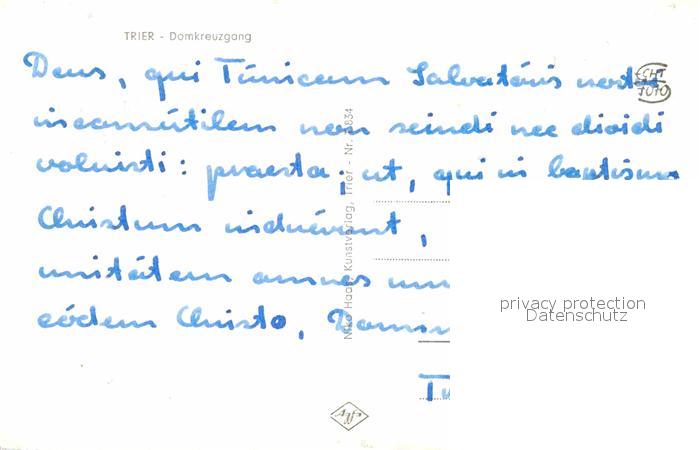 TRIER - Domkreuzgang
Deus, qui Túnicam Salvatóris nostri
inconsútilem non scindi nec dividi
voluisti: praesta; ut, qui in baptismo
Christum induérunt,
unitátem omnes
eódem Christo,
ECHT
FOTO
Trier - Nr.
privacy protection
Datenschutz
Agfa